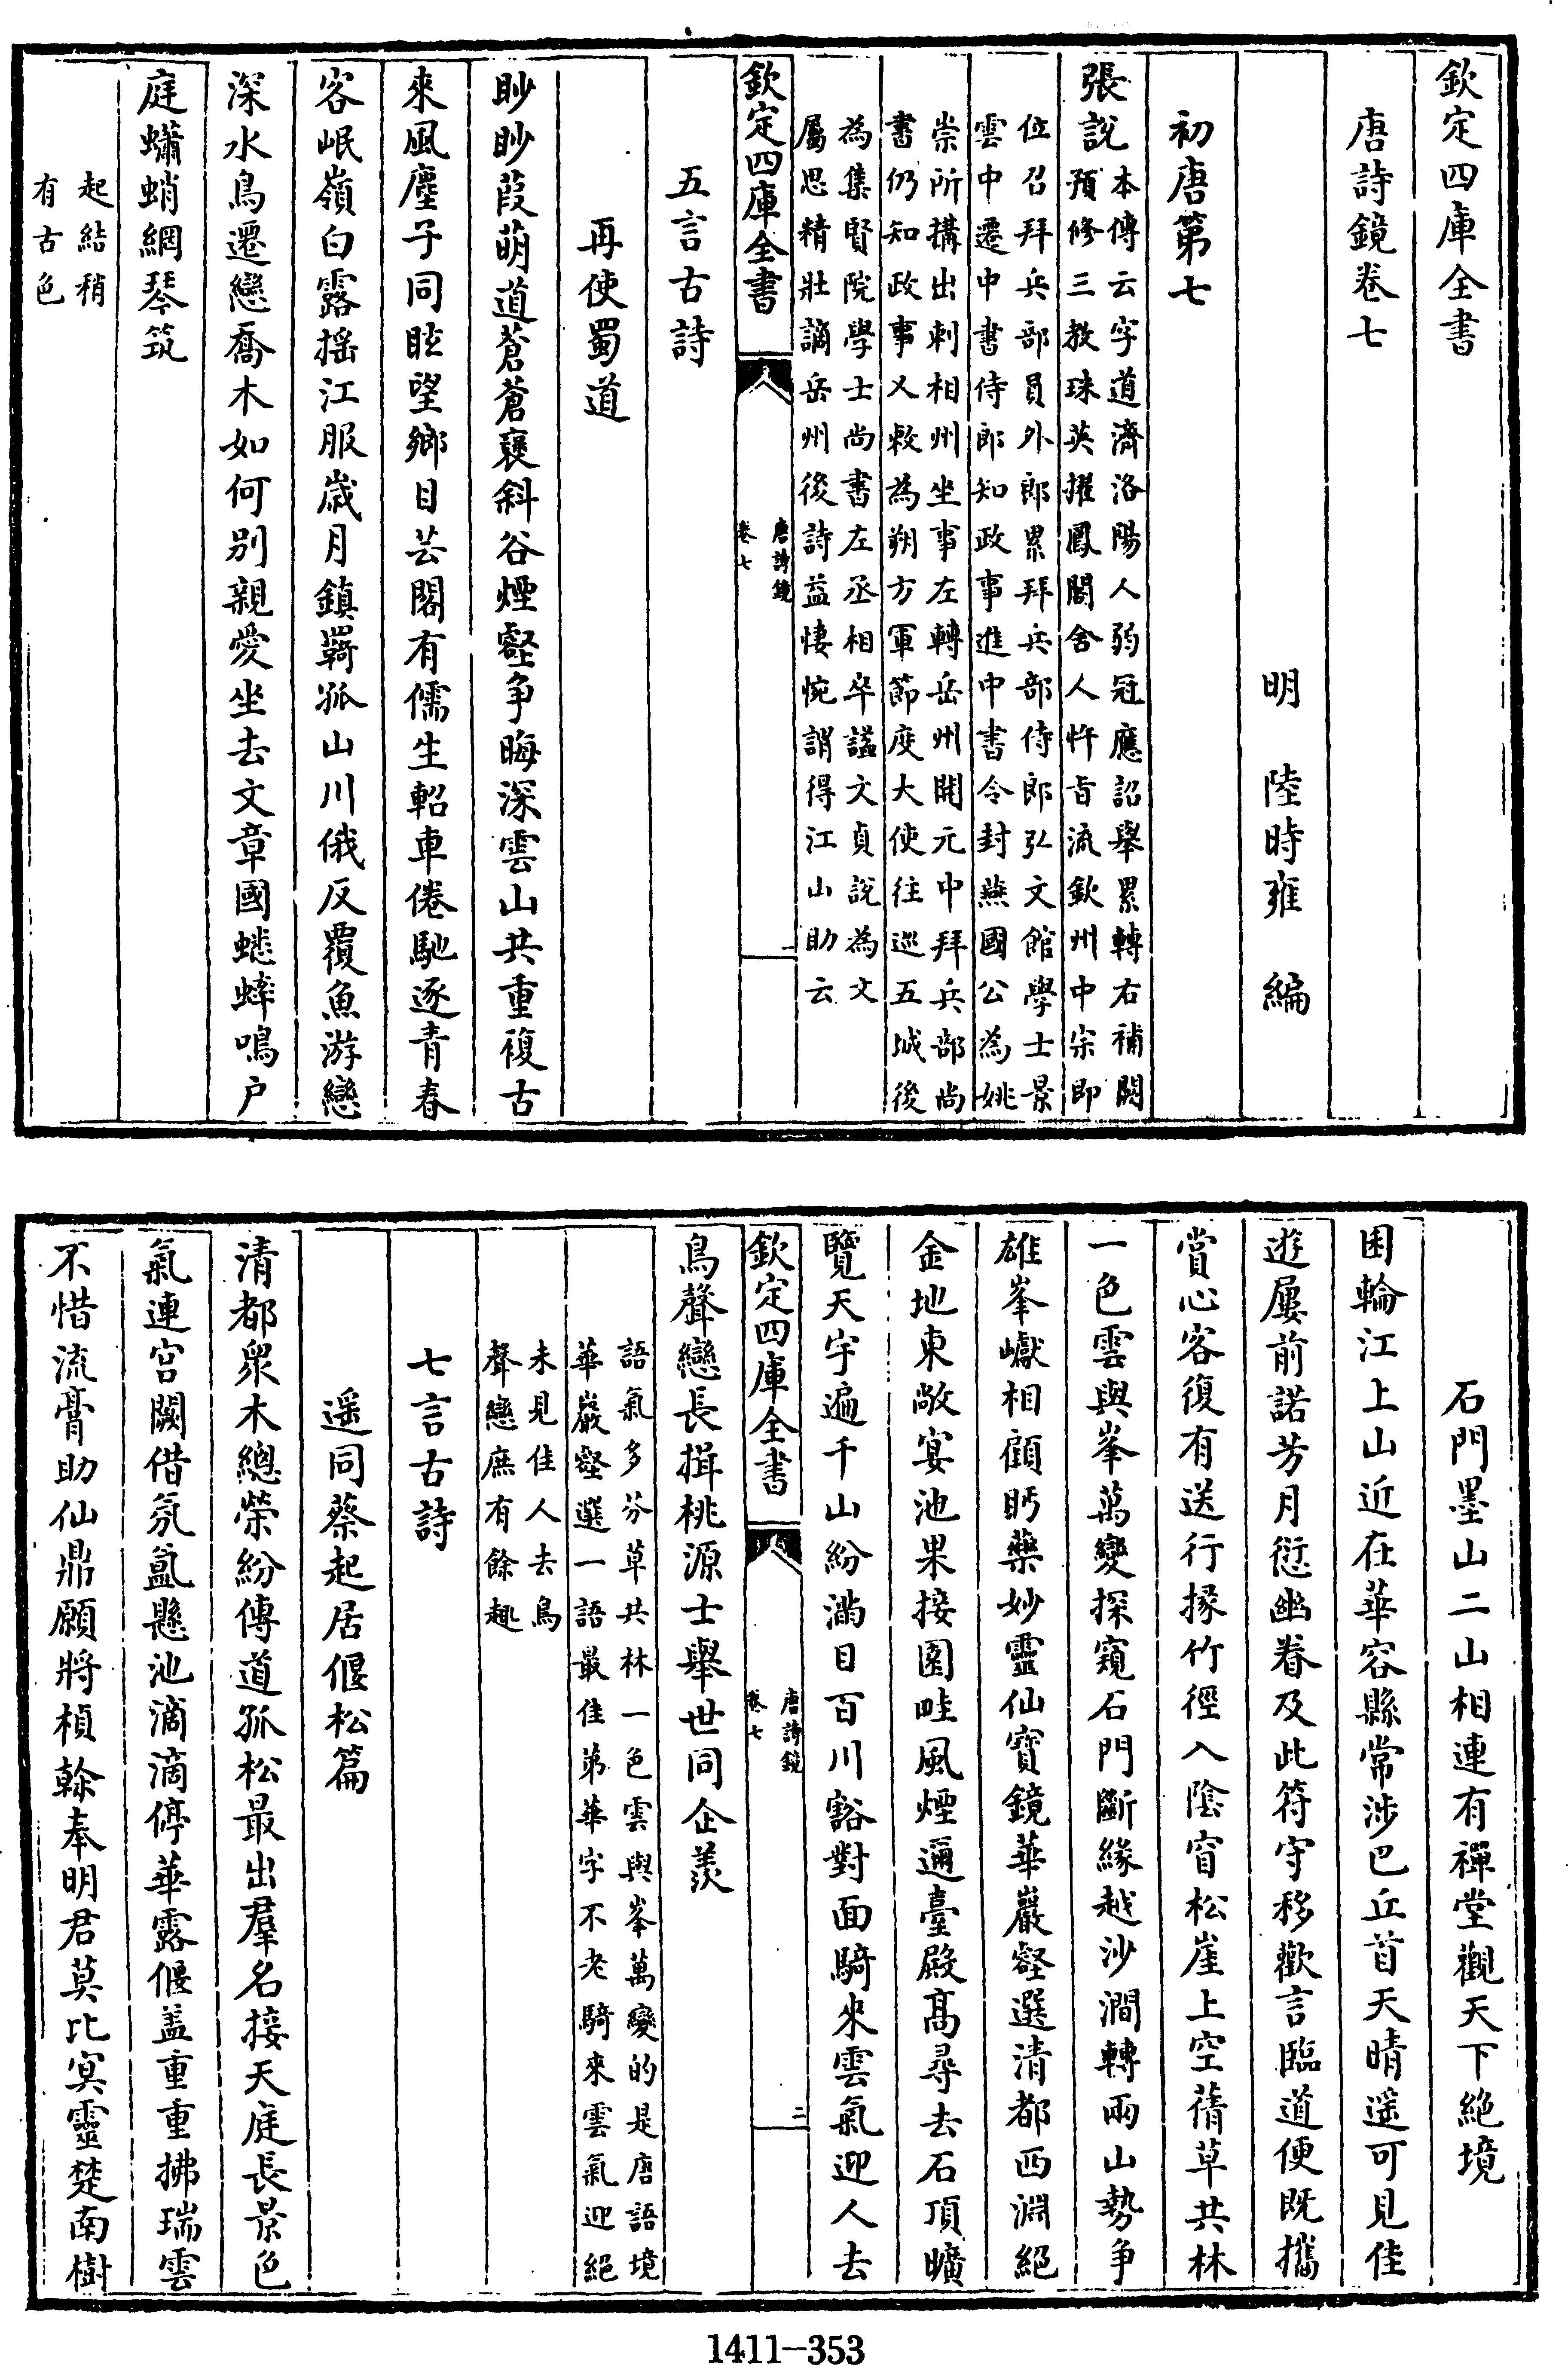 欽定四庫全書
唐詩鏡卷七
明　陸時雍　編
初唐第七
張說
本傳云字道濟洛陽人弱冠應詔舉累轉右補闕
預修三教珠英擢鳳閣舍人忤旨流欽州中宗即
位召拜兵部員外郎累拜兵部侍郎弘文館學士景
雲中遷中書侍郎知政事進中書令封燕國公為姚
崇所搆出刺相州坐事左轉岳州開元中拜兵部尚
書仍知政事又敕為朔方軍節度大使往巡五城後
為集賢院學士尚書左丞相卒諡文貞說為文
屬思精壯謫岳州後詩益悽惋謂得江山助云
欽定四庫全書
唐詩鏡
卷七
一
五言古詩
再使蜀道
眇眇葭萌道蒼蒼褒斜谷煙壑爭晦深雲山共重複古
來風塵子同眩望鄉目芸閣有儒生軺車倦馳逐青春
客岷嶺白露搖江服歲月鎮羇孤山川俄反覆魚游戀
深水鳥遷戀喬木如何別親愛坐去文章國蟋蟀鳴户
庭蠨蛸網琴筑
起結稍
有古色
石門墨山二山相連有禪堂觀天下絕境
困輪江上山近在華容縣常涉巴丘首天晴遥可見佳
遊屢前諾芳月愆幽眷及此符守移歡言臨道便既攜
賞心客復有送行掾竹徑入陰窅松崖上空蒨草共林
一色雲與峯萬變探窺石門斷緣越沙澗轉兩山勢爭
雄峯巘相顧眄藥妙靈仙寶鏡華巖壑選清都西淵絕
金地東敞宴池果接園畦風煙邇臺殿高尋去石頂曠
覽天宇遍千山紛滿目百川豁對面騎來雲氣迎人去
欽定四庫全書
唐詩鏡
卷七
二
鳥聲戀長揖桃源士舉世同企羨
語氣多芬草共林一色雲與峯萬變的是唐語境
華巖壑選一語最佳第華字不老騎來雲氣迎絕
未見佳人去鳥
聲戀庶有餘趣
七言古詩
遥同蔡起居偃松篇
清都衆木總榮紛傳道孤松最出羣名接天庭長景色
氣連宫闕借氛氳懸池滴滴停華露偃盖重重拂瑞雲
不惜流膏助仙鼎願將楨榦奉明君莫比冥靈楚南樹
1411—353